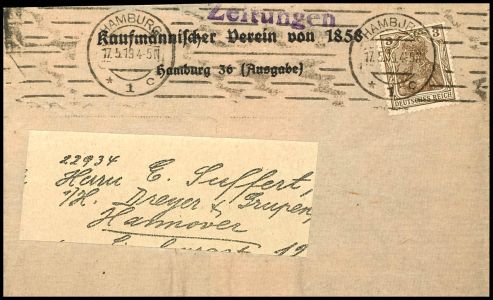 Zeitungen
Kaufmännischer Verein von 1858
Hamburg 36 (Ausgabe)
HAMBURG
17.5.18 4-5N
* 1 c
HAMBURG
17.5.18 4-5N
* 1 c
3 3
DEUTSCHES REICH
22934
Herrn E. Suffert,
Dreyer & Grupen,
Hannover
19